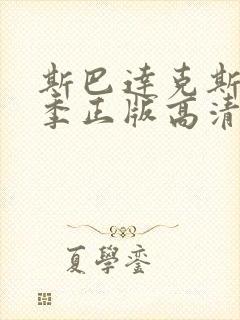 斯巴达克斯
季正版高清
夏學銮